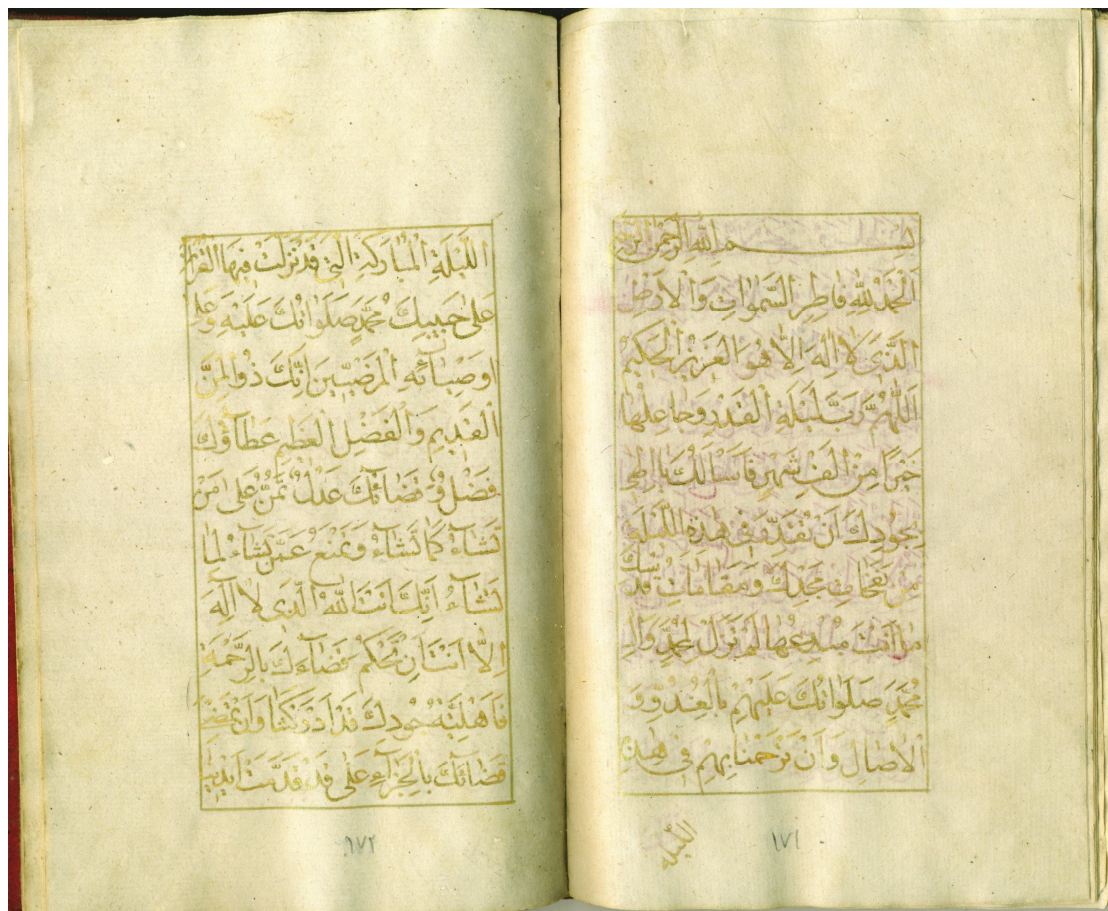 بسم الله الرحمن الرحيم
اَلْحَمْدُ لِلّٰهِ فَاطِرِ السَّمٰوَاتِ وَالْاَرْضِ
الَّذِى لَا اِلٰهَ اِلَّا هُوَ الْعَزِيزُ الْحَكِيمُ
اَللّٰهُمَّ رَبَّ لَيْلَةِ الْقَدْرِ وَجَاعِلَهَا
خَيْرًا مِنْ اَلْفِ شَهْرٍ فَاَسْأَلُكَ يَا اِلٰهِى
بِجُودِكَ اَنْ تُقَدِّرَ فِى هٰذِهِ اللَّيْلَةِ
مِنْ نَفَحَاتِ مَجْدِكَ وَمَقَامَاتِ قُدْسِكَ
مَا اَنْتَ مُبْدِعُهَا لَمْ تَزَلْ لِمُحَمَّدٍ وَالِ
مُحَمَّدٍ صَلَوَاتُكَ عَلَيْهِمْ بِالْغُدُوِّ وَ
الْاٰصَالِ وَاَنْ تَرْحَمَنَا بِهِمْ فِى هٰذِهِ
اللَّيْلَةِ
١٧١
اللَّيْلَةِ الْمُبَارَكَةِ الَّتِى قَدْ نَزَلَتْ فِيهَا الْقُرْاٰنُ
عَلٰى حَبِيبِكَ مُحَمَّدٍ صَلَوَاتُكَ عَلَيْهِ وَعَلٰى
اَوْصِيَائِهِ الْمَرْضِيِّينَ اِنَّكَ ذُو الْمَنِّ
الْقَدِيمِ وَالْفَضْلِ الْعَظِيمِ عَطَاؤُكَ
فَضْلٌ وَ قَضَائُكَ عَدْلٌ تَمُنُّ عَلٰى مَنْ
تَشَاءُ كَمَا تَشَاءُ وَتَمْنَعُ عَمَّنْ تَشَاءُ لِمَا
تَشَاءُ اِنَّكَ اَنْتَ اللّٰهُ الَّذِى لَا اِلٰهَ
اِلَّا اَنْتَ اَنْ تَحْكُمَ قَضَاءَكَ بِالرَّحْمَةِ
بِجُودِكَ وَاَنْ
قَضَائُكَ بِالْجَزَاءِ عَلٰى
١٧٢